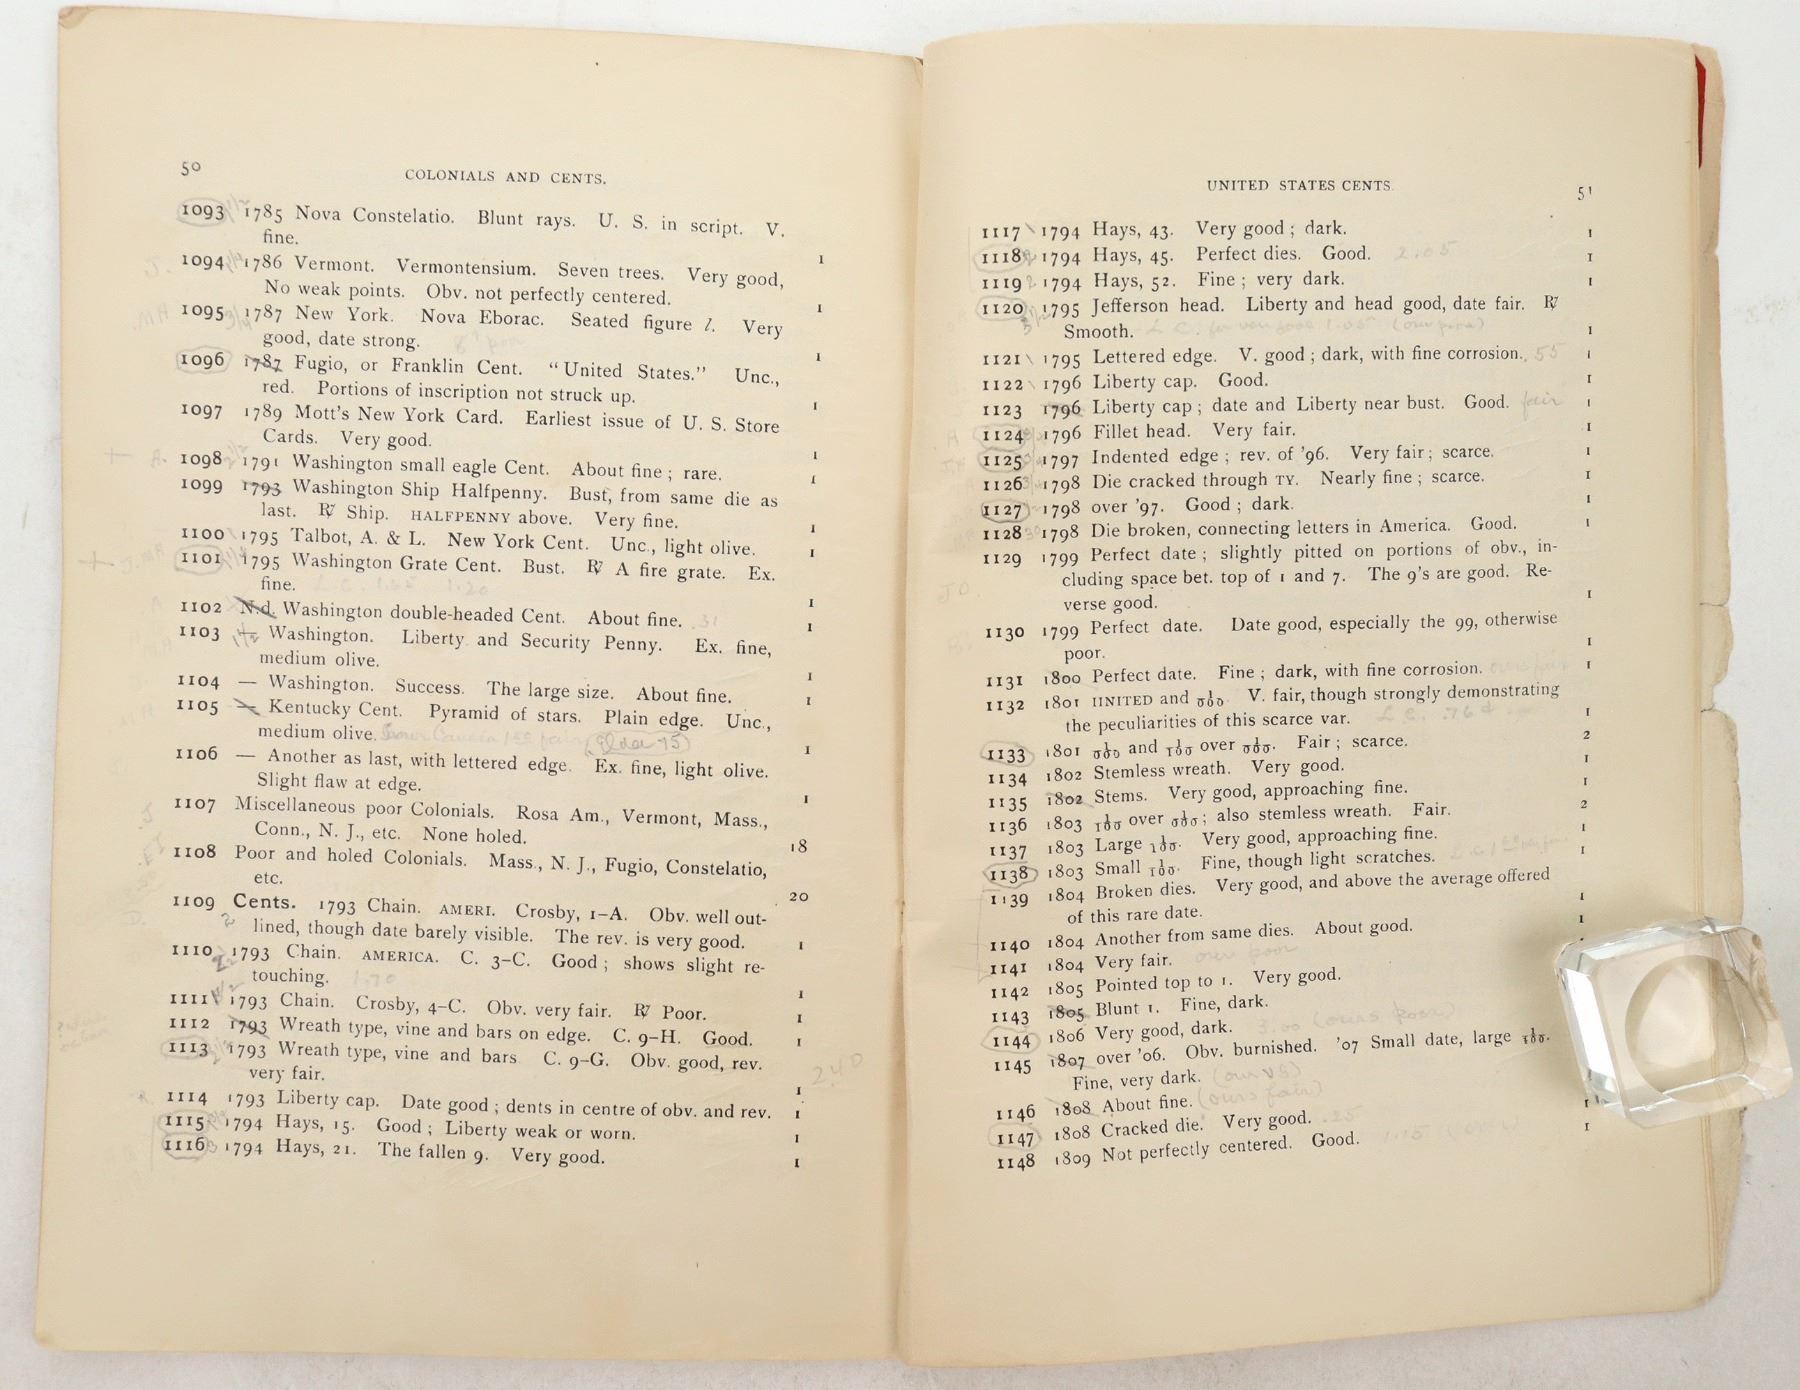 50
COLONIALS AND CENTS.
1093 1785 Nova Constelatio. Blunt rays. U. S. in script. V.
fine. 1
1094 1786 Vermont. Vermontensium. Seven trees. Very good,
No weak points. Obv. not perfectly centered. 1
1095 1787 New York. Nova Eborac. Seated figure l. Very
good, date strong. 1
1096 1787 Fugio, or Franklin Cent. "United States." Unc.,
red. Portions of inscription not struck up. 1
1097 1789 Mott's New York Card. Earliest issue of U. S. Store
Cards. Very good. 1
1098 1791 Washington small eagle Cent. About fine; rare. 1
1099 1793 Washington Ship Halfpenny. Bust, from same die as
last. ℞ Ship. HALFPENNY above. Very fine. 1
1100 1795 Talbot, A. & L. New York Cent. Unc., light olive. 1
1101 1795 Washington Grate Cent. Bust. ℞ A fire grate. Ex.
fine. 1
1102 N.d. Washington double-headed Cent. About fine. .31 1
1103 — Washington. Liberty and Security Penny. Ex. fine,
medium olive. 1
1104 — Washington. Success. The large size. About fine. 1
1105 — Kentucky Cent. Pyramid of stars. Plain edge. Unc.,
medium olive. 1
1106 — Another as last, with lettered edge. Ex. fine, light olive.
Slight flaw at edge. 1
1107 Miscellaneous poor Colonials. Rosa Am., Vermont, Mass.,
Conn., N. J., etc. None holed. 18
1108 Poor and holed Colonials. Mass., N. J., Fugio, Constelatio,
etc. 20
1109 Cents. 1793 Chain. AMERI. Crosby, 1-A. Obv. well out-
lined, though date barely visible. The rev. is very good. 1
1110 1793 Chain. AMERICA. C. 3-C. Good; shows slight re-
touching. 1.70 1
1111 1793 Chain. Crosby, 4-C. Obv. very fair. ℞ Poor. 1
1112 1793 Wreath type, vine and bars on edge. C. 9-H. Good. 1
1113 1793 Wreath type, vine and bars C. 9-G. Obv. good, rev.
very fair. 1
2.40
1114 1793 Liberty cap. Date good; dents in centre of obv. and rev. 1
1115 1794 Hays, 15. Good; Liberty weak or worn. 1
1116 1794 Hays, 21. The fallen 9. Very good. 1
UNITED STATES CENTS.
51
1117 1794 Hays, 43. Very good; dark. 1
1118 1794 Hays, 45. Perfect dies. Good. 2.05 1
1119 1794 Hays, 52. Fine; very dark. 1
1120 1795 Jefferson head. Liberty and head good, date fair. ℞
Smooth. 1
1121 1795 Lettered edge. V. good; dark, with fine corrosion. .55 1
1122 1796 Liberty cap. Good. 1
1123 1796 Liberty cap; date and Liberty near bust. Good. fair 1
1124 1796 Fillet head. Very fair. 1
1125 1797 Indented edge; rev. of '96. Very fair; scarce. 1
1126 1798 Die cracked through TY. Nearly fine; scarce. 1
1127 1798 over '97. Good; dark. 1
1128 1798 Die broken, connecting letters in America. Good. 1
1129 1799 Perfect date; slightly pitted on portions of obv., in-
cluding space bet. top of 1 and 7. The 9's are good. Re-
verse good. 1
1130 1799 Perfect date. Date good, especially the 99, otherwise
poor. 1
1131 1800 Perfect date. Fine; dark, with fine corrosion. 1
1132 1801 IINITED and 1/000. V. fair, though strongly demonstrating
the peculiarities of this scarce var. 1
1133 1801 1/000 and 1/100 over 1/000. Fair; scarce. 2
1134 1802 Stemless wreath. Very good. 1
1135 1802 Stems. Very good, approaching fine. 1
1136 1803 1/100 over 1/000; also stemless wreath. Fair. 2
1137 1803 Large 1/100. Very good, approaching fine. 1
1138 1803 Small 1/100. Fine, though light scratches. 1
1139 1804 Broken dies. Very good, and above the average offered
of this rare date. 1
1140 1804 Another from same dies. About good. 1
1141 1804 Very fair. ours poor
1142 1805 Pointed top to 1. Very good.
1143 1805 Blunt 1. Fine, dark.
1144 1806 Very good, dark. 3.00 (ours poor)
1145 1807 over '06. Obv. burnished. '07 Small date, large 1/100.
Fine, very dark.
1146 1808 About fine. (ours fair) 1
1147 1808 Cracked die. Very good. .25 1
1148 1809 Not perfectly centered. Good.